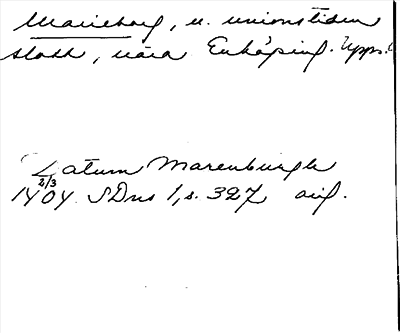 Marieborg, u. unionstiden
slott, nära Enköping. Upps.
Datum Marenburgh
2/3
1404. SDns 1, s. 327 orig.